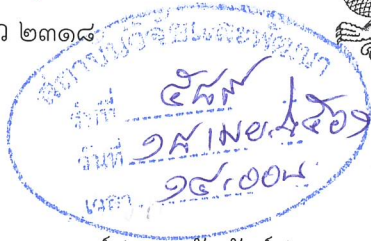 ว ๒๓๑๘
สถาบันวิจัยและพัฒนา
รับที่ ๕๘๙
วันที่ ๑๘ เมย. ๒๕๖๑
เวลา ๑๔.๐๐น